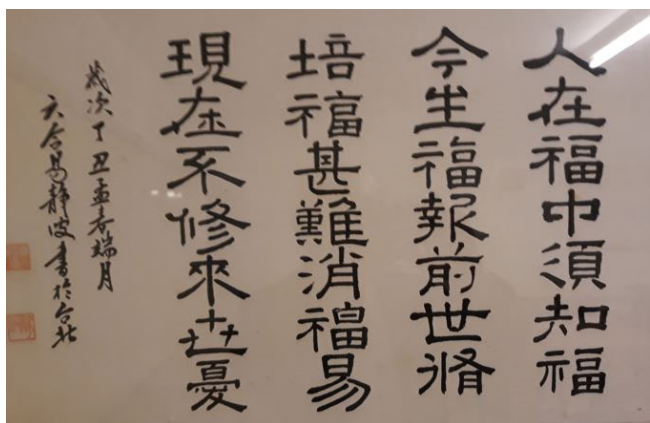 人在福中須知福
今生福報前世脩
培福甚難消福易
現在不修來世憂
歲次丁丑孟春端月
六合易靜波書於台北